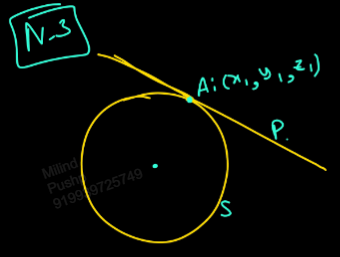 N-3
A;(x₁,y₁,z₁)
P.
Milind
Pushp
919999725749
S